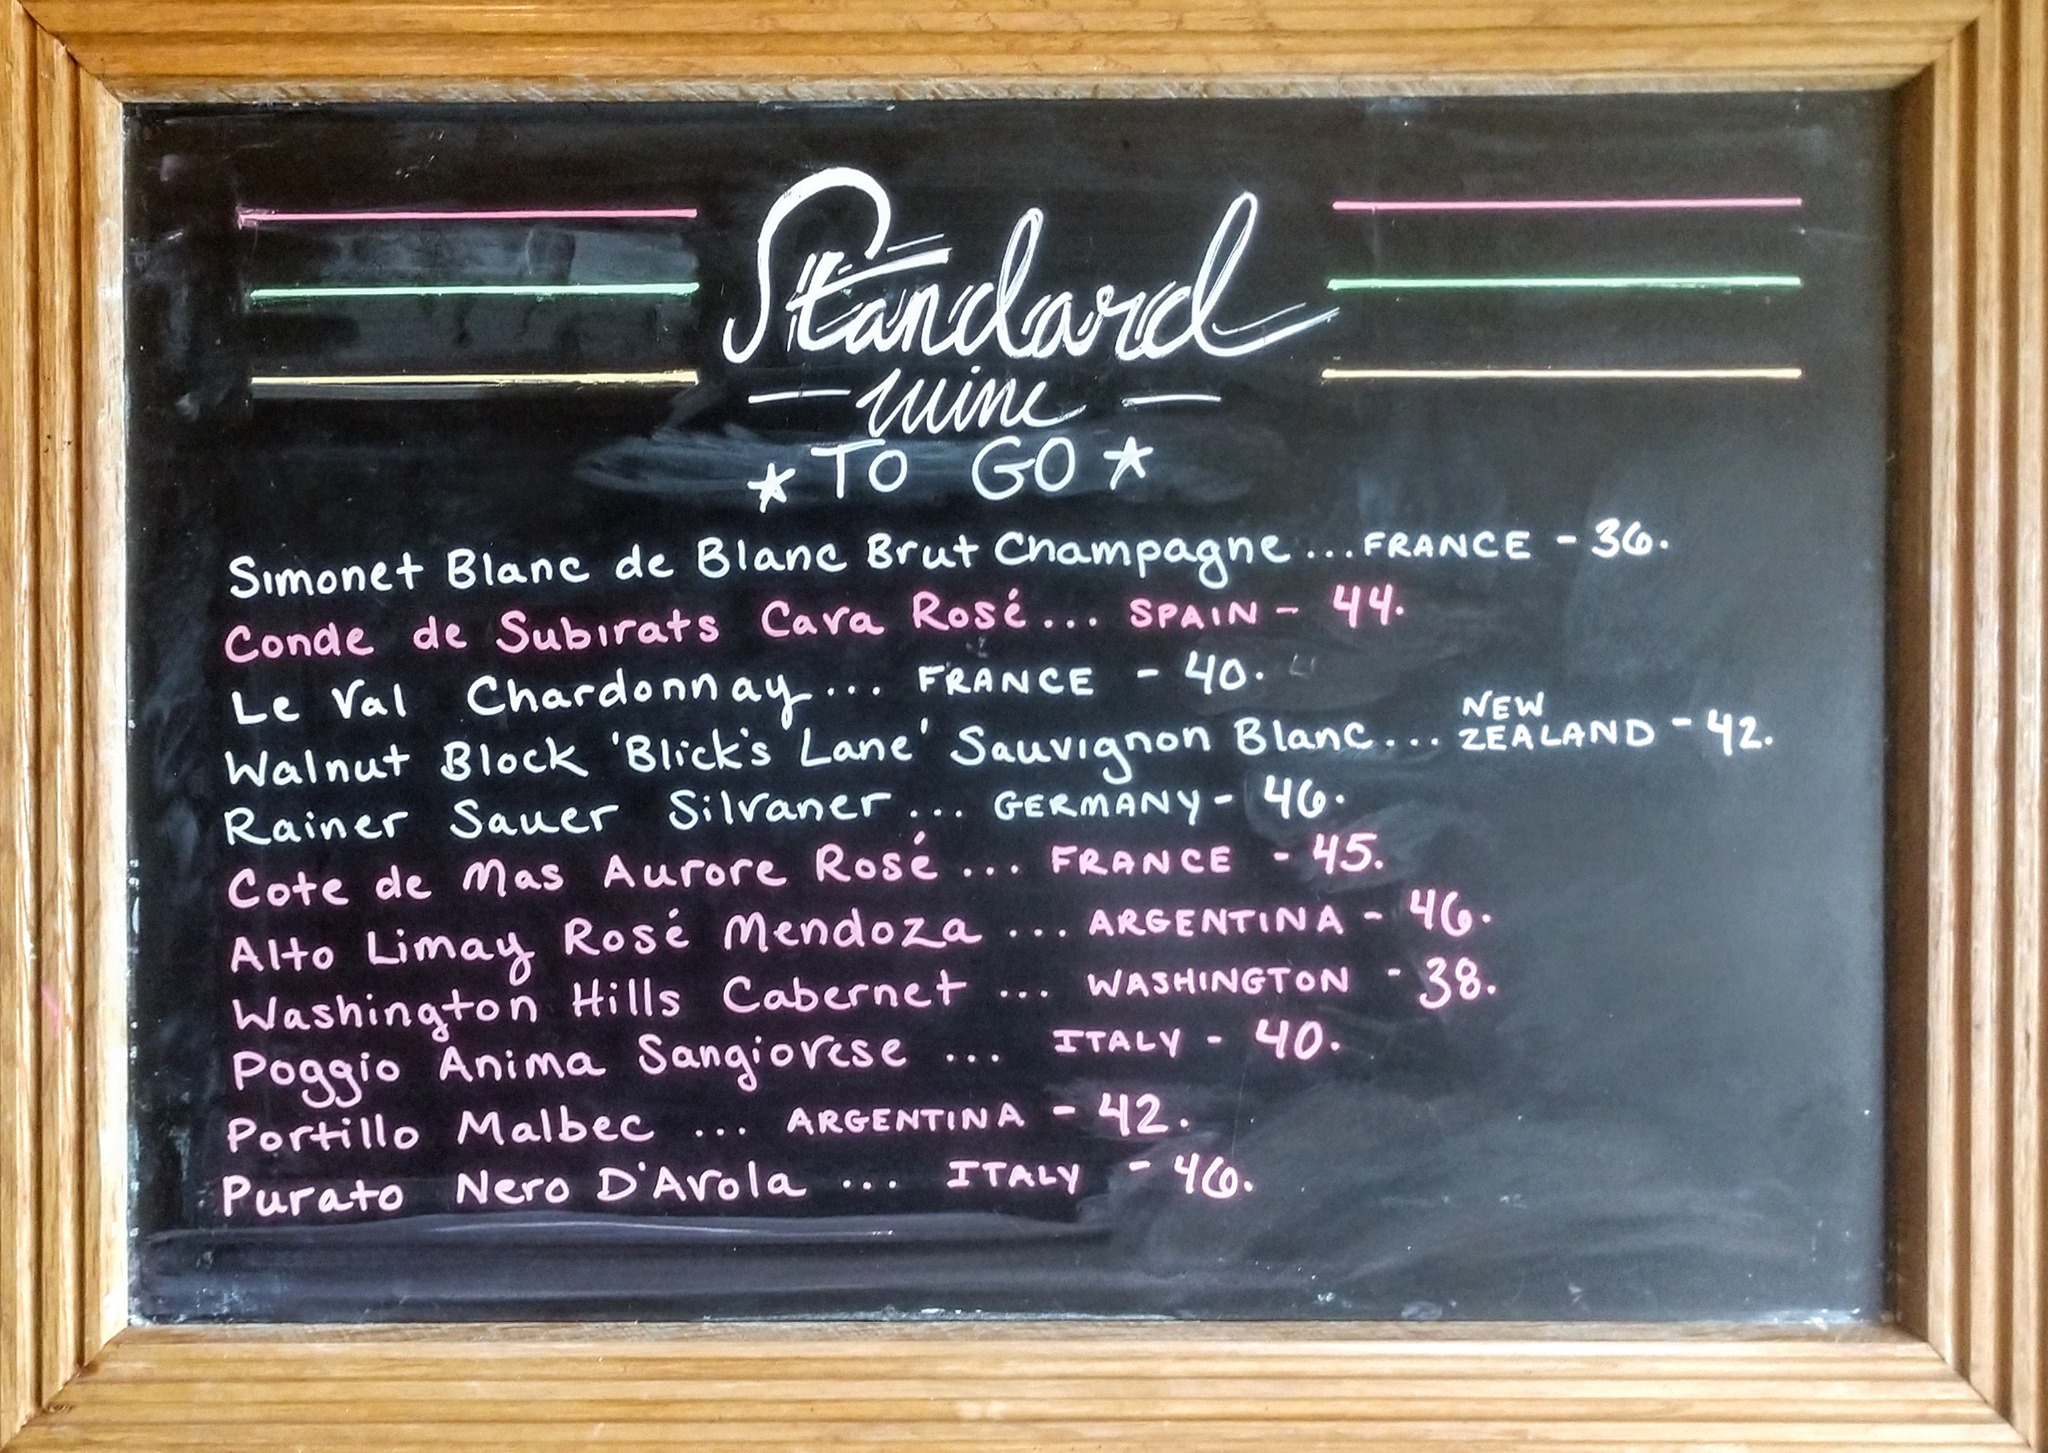 Standard
wine
TO GO
Simonet Blanc de Blanc Brut Champagne ... FRANCE - 36.
Conde de Subirats Cava Rosé ... SPAIN - 44.
Le Val Chardonnay ... FRANCE - 40.
Walnut Block 'Blick's Lane' Sauvignon Blanc ... NEW ZEALAND - 42.
Rainer Sauer Silvaner ... GERMANY - 46.
Cote de Mas Aurore Rosé ... FRANCE - 45.
Alto Limay Rosé Mendoza ... ARGENTINA - 46.
Washington Hills Cabernet ... WASHINGTON - 38.
Poggio Anima Sangiovese ... ITALY - 40.
Portillo Malbec ... ARGENTINA - 42.
Purato Nero D'Avola ... ITALY - 46.